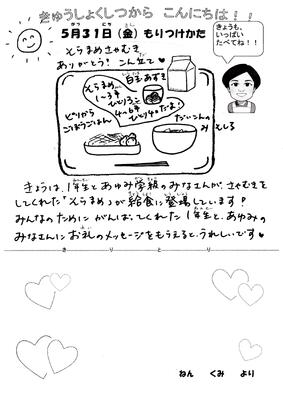 きゅうしょくしつから こんにちは！！
5月31日(金) もりつけかた
きょうも、
いっぱい
たべてね！！
そらまめさやむき
ありがとう！こんだて♥
そらまめ
1～3年
ひとり3こ
4～6年
ひとり4こだよ！
白玉あずき
ピリから
ごぼうごはん
だいこんの
みそしる
きょうは、1年生とあゆみ学級のみなさんが、さやむきを
してくれた「そらまめ」が給食に登場しています？
みんなのために がんばってくれた 1年生と、あゆみの
みなさんに お礼のメッセージを もらえると、うれしいです♥
きりとり
ねん くみ より